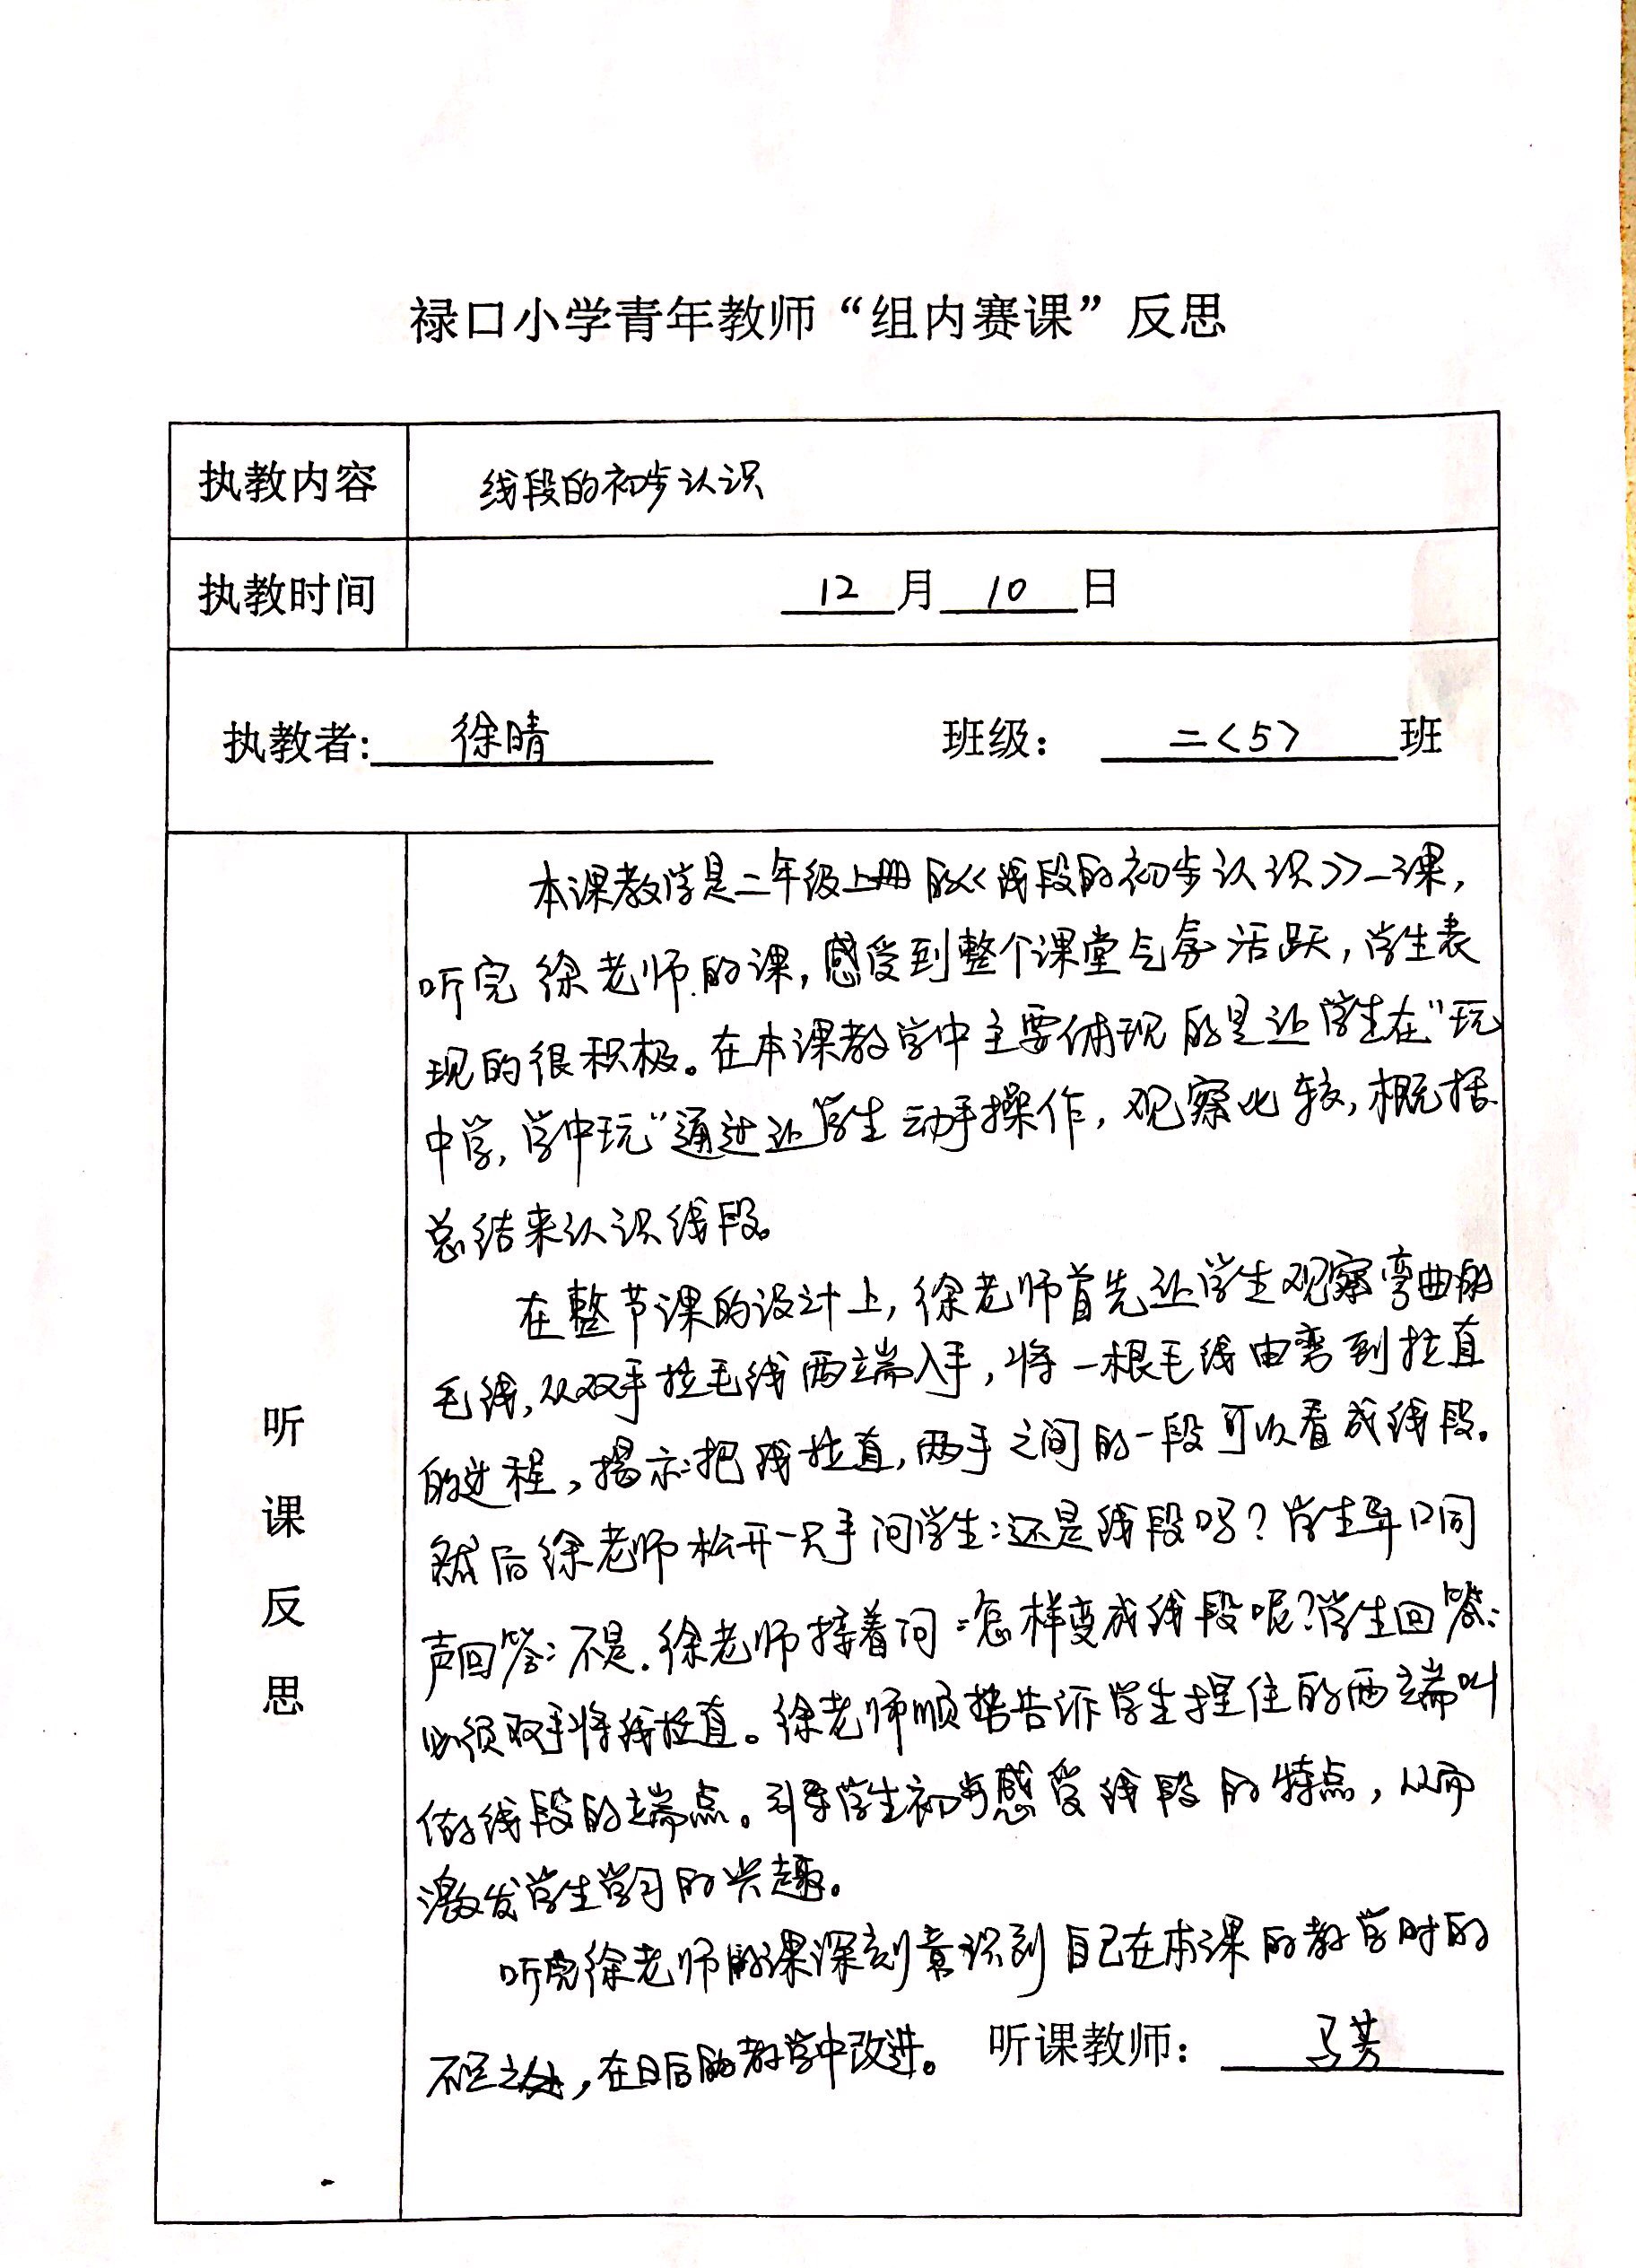 禄口小学青年教师“组内赛课”反思
执教内容 线段的初步认识
执教时间 12月10日
执教者: 徐晴 班级: 二<5>班
听课反思
本课教学是二年级上册的《线段的初步认识》一课,
听完徐老师的课,感受到整个课堂气氛活跃,学生表
现的很积极。在本课教学中主要体现的是让学生在“玩
中学,学中玩”通过让学生动手操作,观察比较,概括
总结来认识线段。
在整节课的设计上,徐老师首先让学生观察弯曲的
毛线,从双手拉毛线两端入手,将一根毛线由弯到拉直
的过程,揭示:把线拉直,两手之间的一段可以看成线段。
然后徐老师松开一只手问学生:还是线段吗?学生异口同
声回答:不是.徐老师接着问:怎样变成线段呢?学生回答:
必须双手将线拉直。徐老师顺势告诉学生捏住的两端叫
做线段的端点。引导学生初步感受线段的特点,从而
激发学生学习的兴趣。
听完徐老师的课深刻意识到自己在本课的教学时的
不足之处,在日后的教学中改进。 听课教师: 马芳